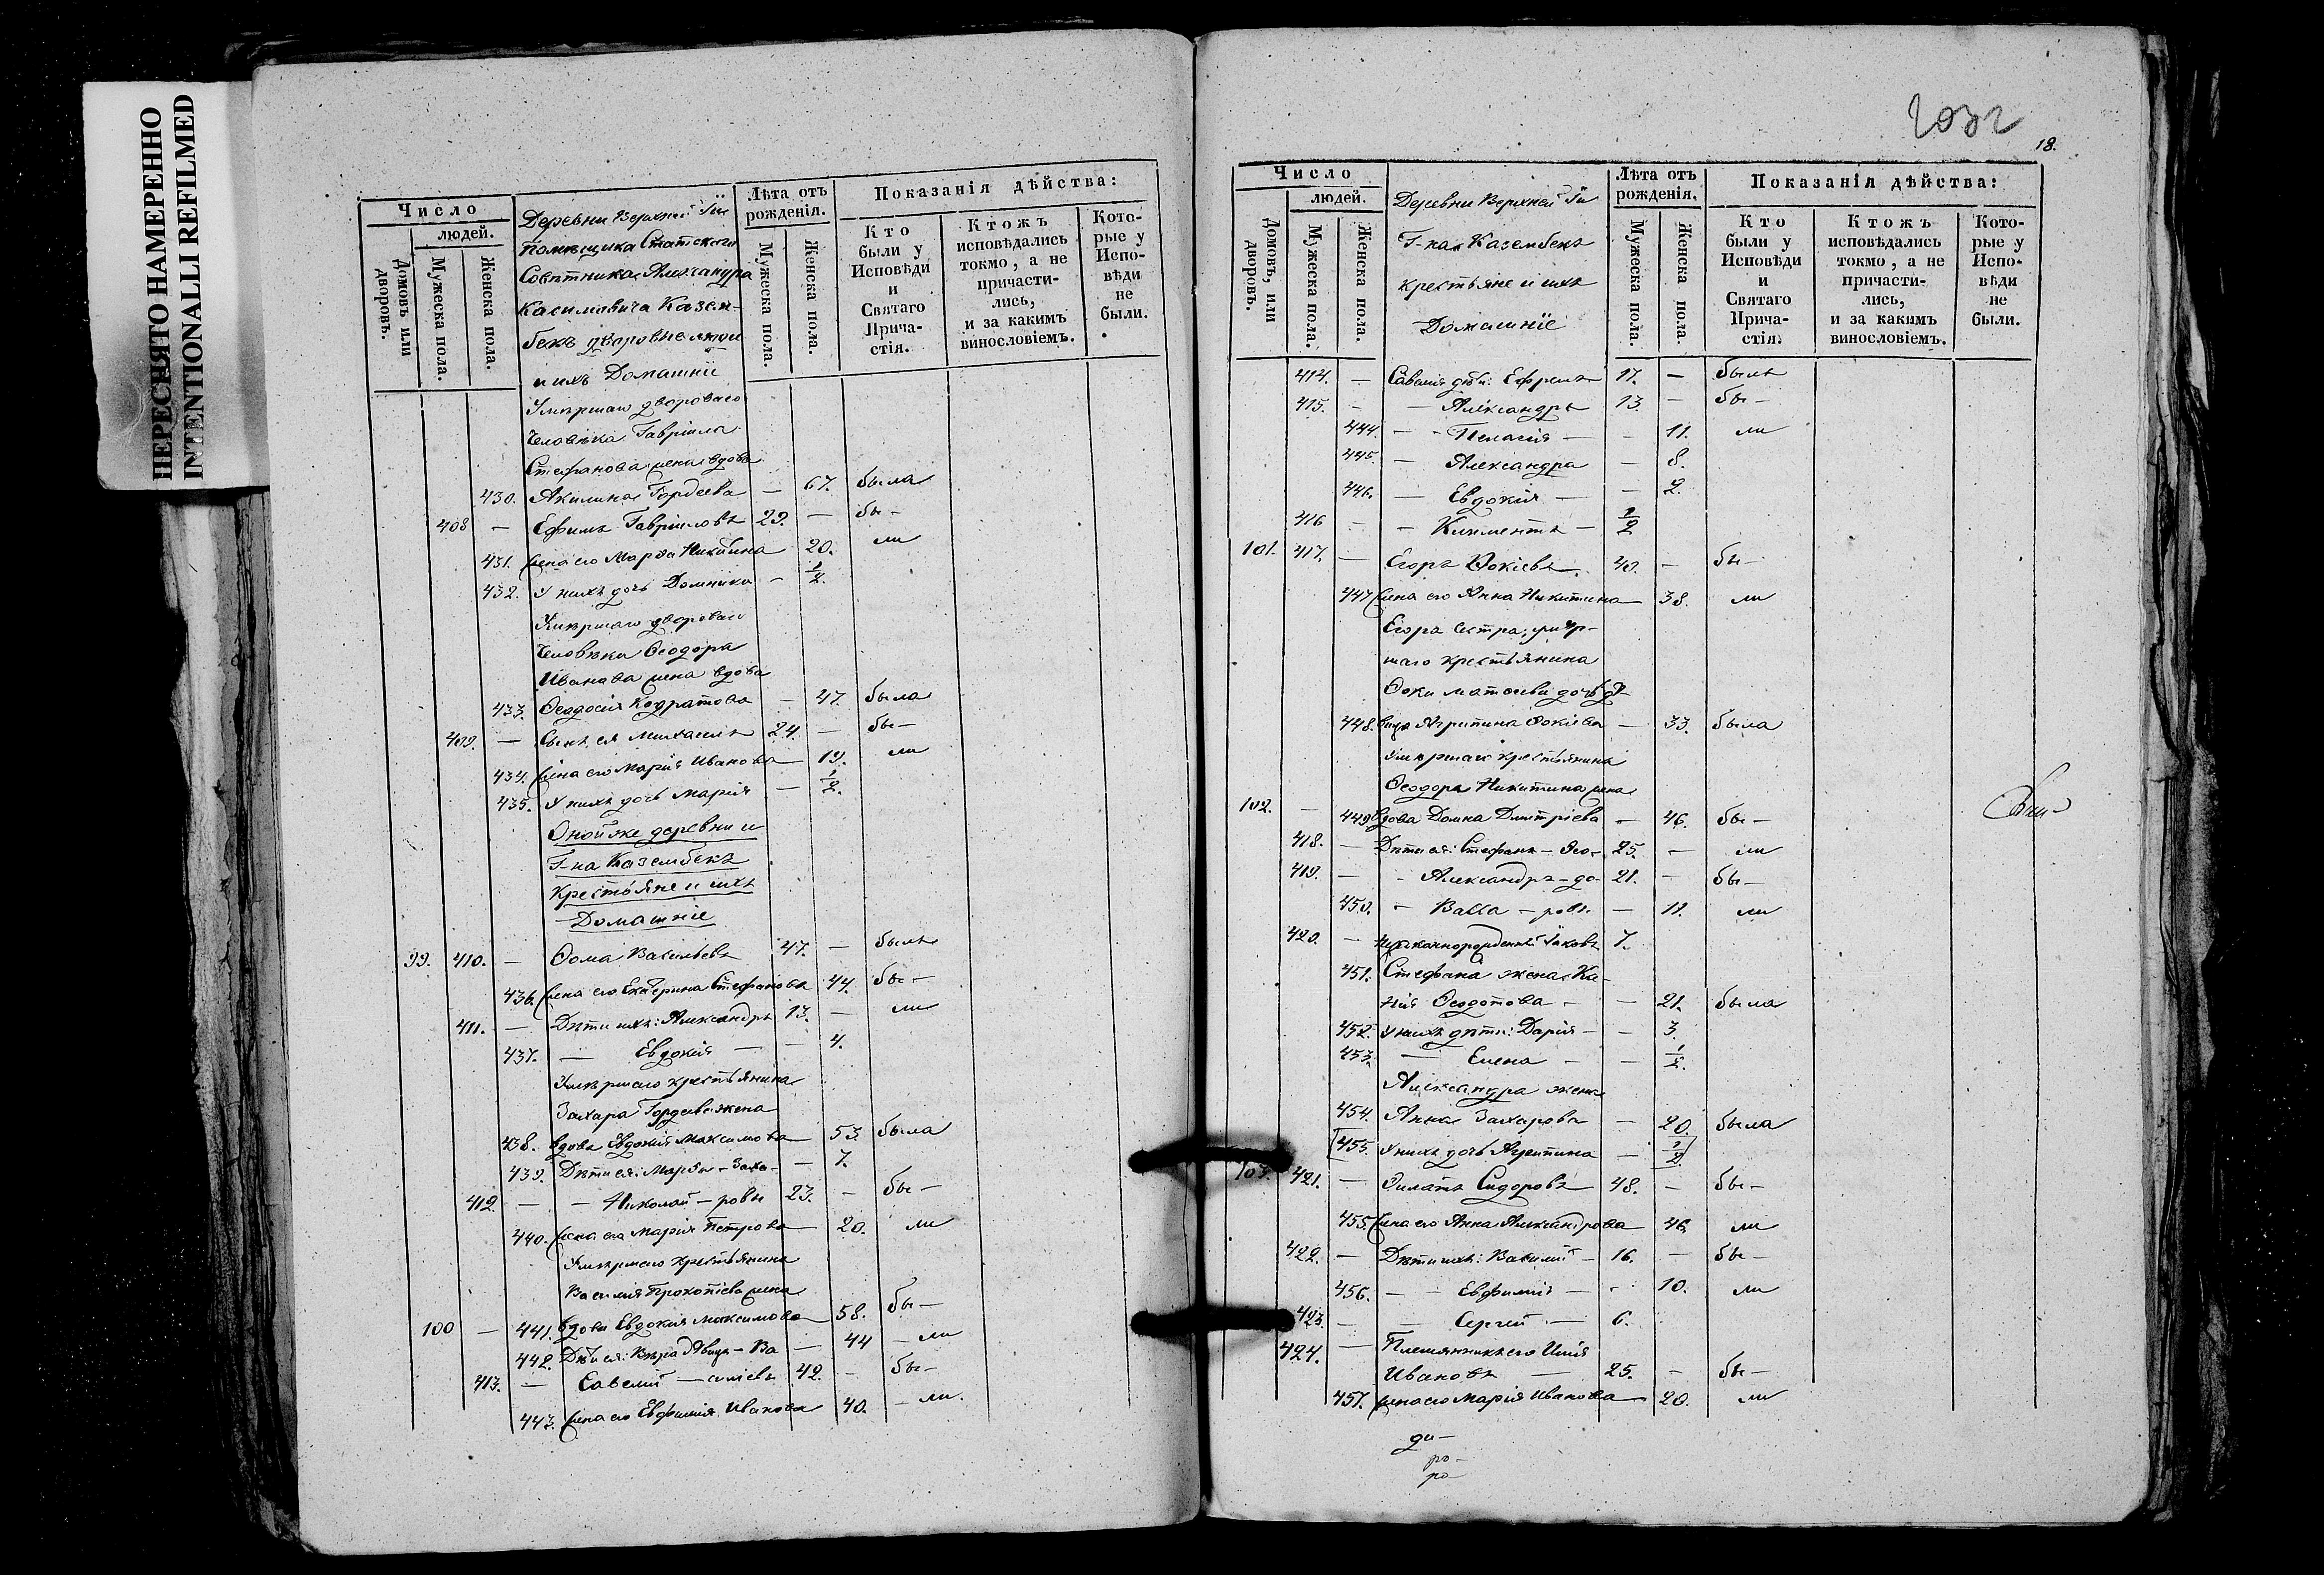 ПЕРЕСНЯТО НАМЕРЕННО
INTENTIONALLI REFILMED
Число
людей.
Домовъ или дворовъ.
Мужеска пола.
Женска пола.
Деревни Верхней
Помѣщика Статскаго
Совѣтника Александра
Касимовича Казем-
бекъ дворовые люди
и ихъ Домашніе
Лѣта отъ рожденія.
Мужеска пола.
Женска пола.
Показанія дѣйства:
Кто были у Исповѣди и Святаго Причастія.
Ктожъ исповѣдались токмо, а не причастились, и за какимъ винословіемъ.
Которые у Исповѣди не были.
Умершаго двороваго
Человѣка Гавріила
Стефанова жена вдова
430. Акилина Гордеева — 67. была
408 — Ефимъ Гавриловъ 29. — бы-
431. жена его Марѳа Никитина 20. ли
432. У нихъ дочь Домника — 1/2.
Умершаго двороваго
Человѣка Ѳеодора
Иванова жена вдова
433. Ѳеодосія Кодратова — 47. была
409. — Сынъ ея Михаилъ 24. — бы-
434. жена его Марія Иванова 19. ли
435. У нихъ дочь Марія — 1/2.
Оной же деревни и
Г-на Казембекъ
Крестьяне и ихъ
Домашніе
99. 410. — Ѳома Васильевъ 47. — былъ
436. жена его Екатерина Стефанова 44. бы-
411. — Дѣти ихъ: Александръ 13. — ли
437. — Евдокія — — 4.
Умершаго крестьянина
Захара Гордеева жена
438. вдова Евдокія Максимова 53. была
439. Дѣти ея: Марѳа - Заха- — 7.
412. — — Николай - ровы 23. — бы-
440. жена его Марія Петрова 20. ли
Умершаго крестьянина
Василія Прокопіева жена
100 — 441. вдова Евдокия Максимова 58. бы-
442. Дѣти ея: Вѣра дѣвица - Ва — 44 - ли
413. — Савелій — силіевы 42. — бы-
443. жена его Евфимія Иванова 40. - ли.
18.
Число
людей.
Домовъ, или дворовъ.
Мужеска пола.
Женска пола.
Деревни Верхней
Г-на Казембекъ
крестьяне и ихъ
Домашніе
Лѣта отъ рожденія.
Мужеска пола.
Женска пола.
Показанія дѣйства:
Кто были у Исповѣди и Святаго Причастія.
Ктожъ исповѣдались токмо, а не причастились, и за какимъ винословіемъ.
Которые у Исповѣди не были.
414. — Савелія дѣти: Ефремъ 17. — былъ
415. - — Александръ 13. — бы-
444. — - Пелагія — - 11. ли
445. — Александра — 8.
446. — Евдокія — — 2.
416 - - Климентъ — 1/2
101. 417. — Егоръ Ѳокіевъ 40. — бы-
447. жена его Анна Никитина 38. ли
Егора сестра, умер-
шаго крестьянина
448. вица Агрипина Ѳокіева — 33. была
Умершаго крестьянина
Ѳеодора Никитина жена
102. — 449. вдова Домна Дмитріева — 46. бы-
418. — Дѣти ея: Стефанъ - Ѳео- 25. — ли
419. — - Александръ - до- 21. — бы-
450. - Васса - ровы — 11. ли
420. — Іаковъ 7.
451. Стефана жена Ксе-
нія Ѳеодотова — — 21. была
452. У нихъ дѣти: Дарія — — 3.
453. — Елена — — 1/2.
Александра жена
454. Анна Захарова — 20. была
[455. У нихъ дочь Агрипина — 1/2]
103. 421. — Филатъ Сидоровъ 48. — бы-
455. жена его Анна Александрова 46. ли
422. — Дѣти ихъ: Василій — 16. — бы-
456. — — Евфимія — - 10. ли
423. — — Сергій — 6.
424. — Племянникъ его Илія
Ивановъ — 25. — бы-
457. жена его Марія Иванова 20. ли